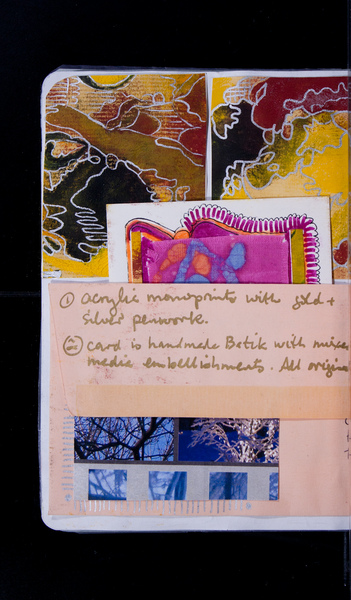 ① acrylic monoprints with gold +
silver penwork.
② card is handmade Batik with mixe
media embellishments. All origina